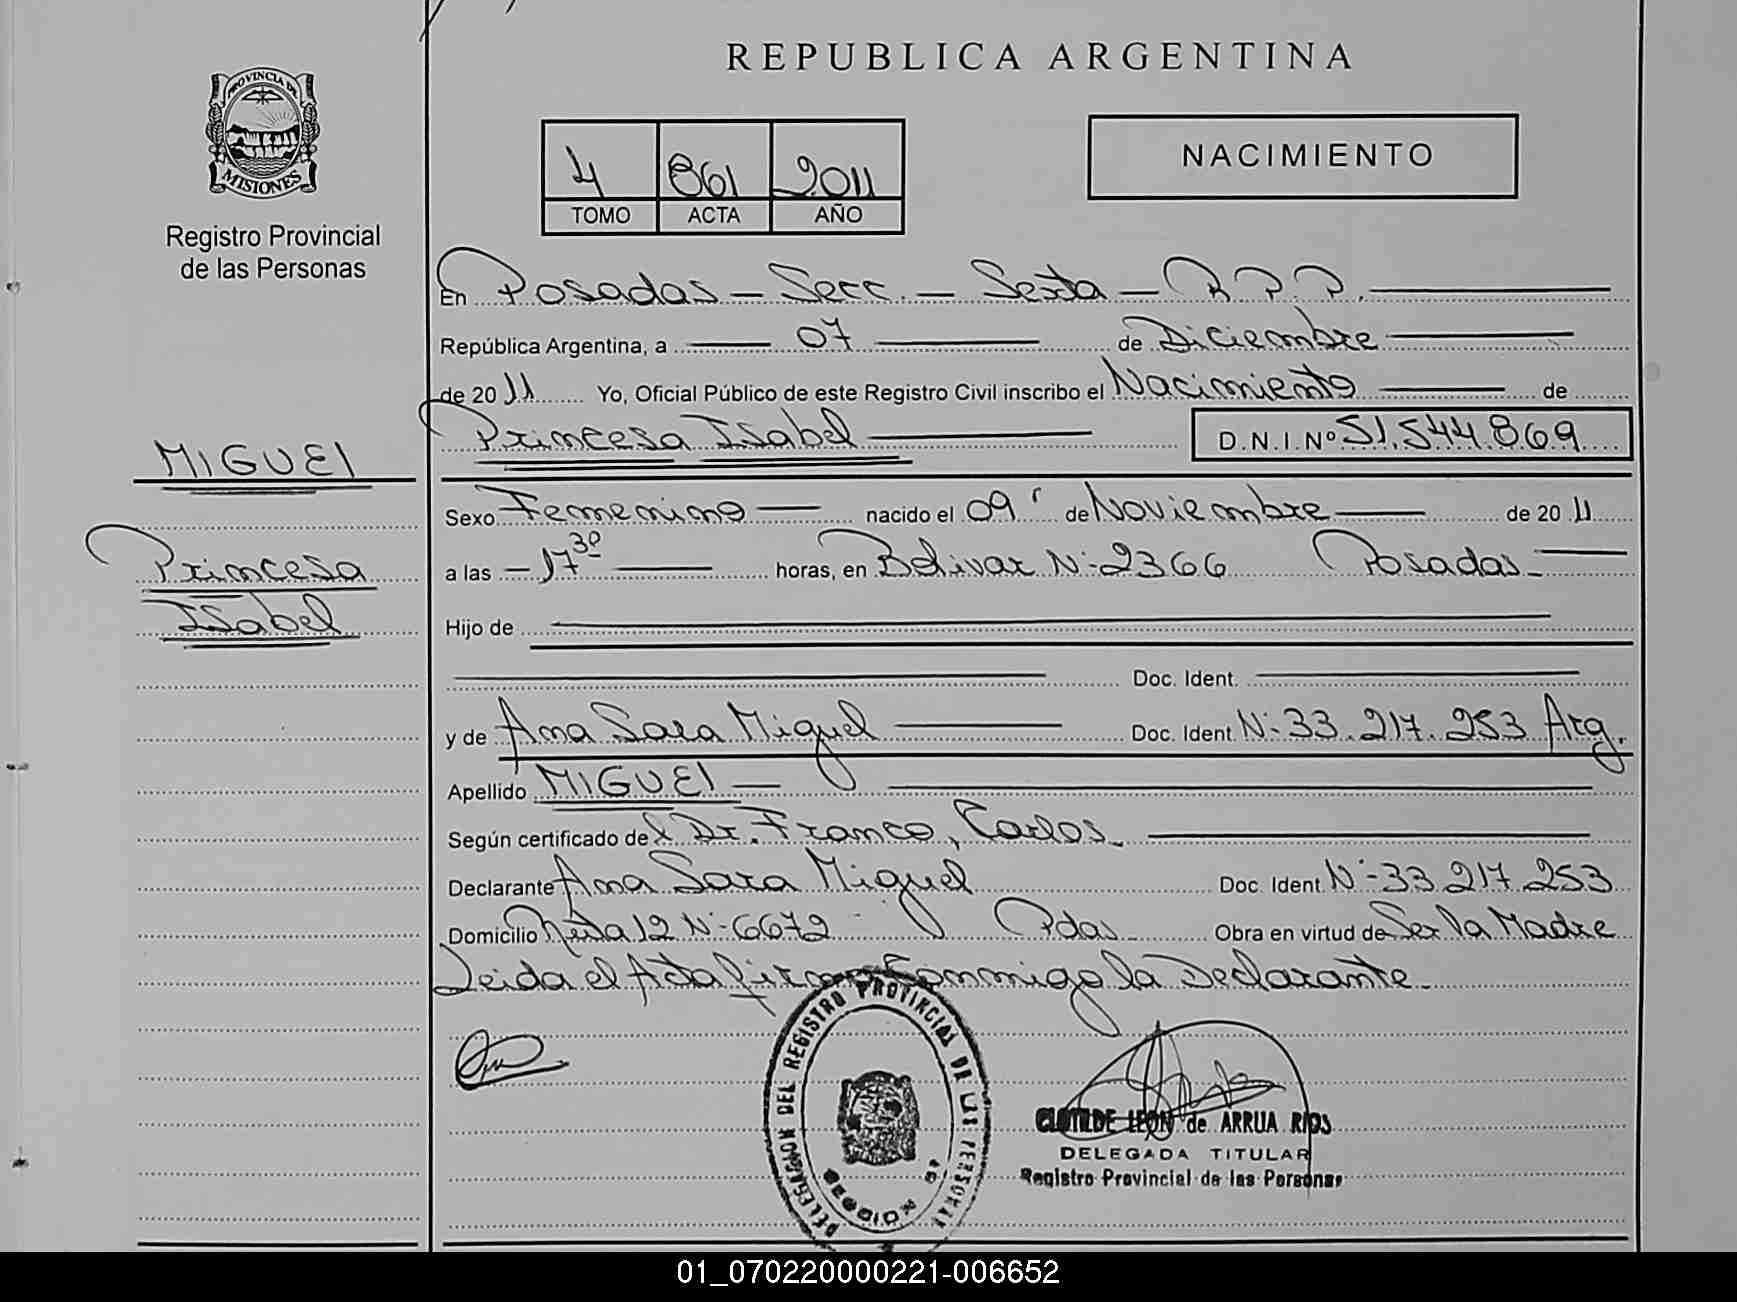 REPUBLICA ARGENTINA
PROVINCIA DE
MISIONES
Registro Provincial
de las Personas
4 861 2011
TOMO ACTA AÑO
NACIMIENTO
En Posadas - Secc. - Sexta - R.P.P.
República Argentina, a 07 de Diciembre
de 2011 Yo, Oficial Público de este Registro Civil inscribo el Nacimiento de
Princesa Isabel D.N.I.Nº 51.544.869
MIGUEL
Princesa
Isabel
Sexo Femenino nacido el 09 de Noviembre de 2011
a las - 17 30 horas, en Bolivar Nº 2366 Posadas
Hijo de
Doc. Ident.
y de Ana Sara Miguel Doc. Ident. Nº 33.217.253 Arg.
Apellido MIGUEL
Según certificado del Dr. Franco, Carlos
Declarante Ana Sara Miguel Doc. Ident. Nº 33 217 253
Domicilio 12 Nº 6672 Pdas Obra en virtud de Ser la Madre
Leida el Acta firma Conmigo la Declarante.
DELEGACION DEL REGISTRO PROVINCIAL DE LAS PERSONAS
CLOTILDE LEON de ARRUA RIOS
DELEGADA TITULAR
Registro Provincial de las Personas
01_070220000221-006652